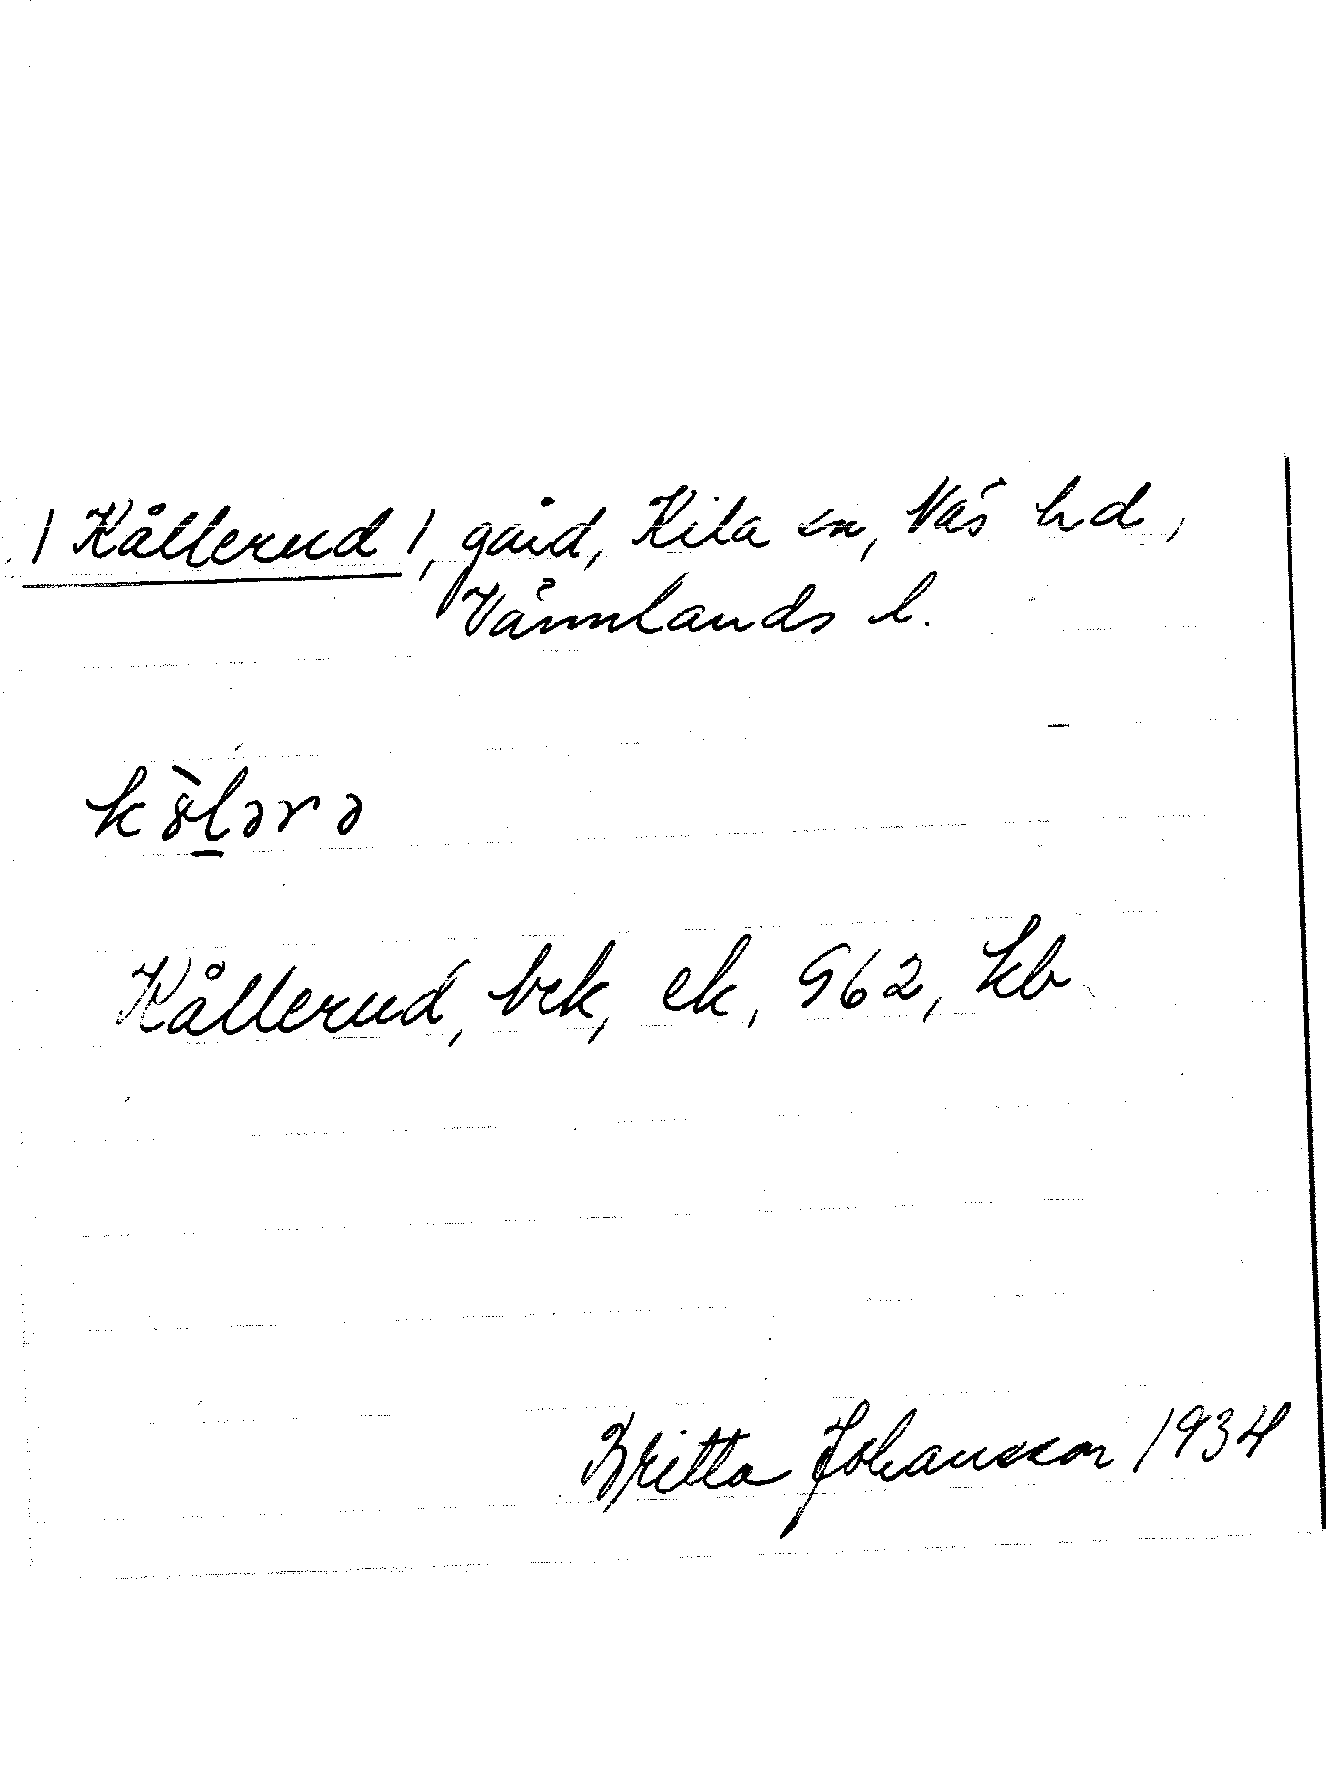 /Kållerud/, gård, Kila sn, Näs hd,
Värmlands l.
kòl̠ərə
Kållerud, bek, ek, 962, kb
Britta Johansson 1934